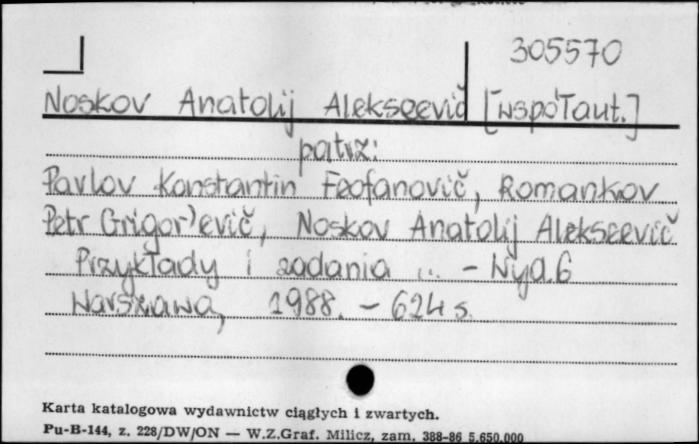 305570
Noskov Anatolij Alekseevič [współaut.]
patrz:
Pavlov Konstantin Feofanovič, Romankov
Petr Grigor'evič, Noskov Anatolij Alekseevič
Przykłady i zadania ... - Wyd. 6
Warszawa, 1988. - 624 s.
Karta katalogowa wydawnictw ciągłych i zwartych.
Pu-B-144, z. 228/DW/ON — W.Z.Graf. Milicz, zam. 388-86 5.650.000